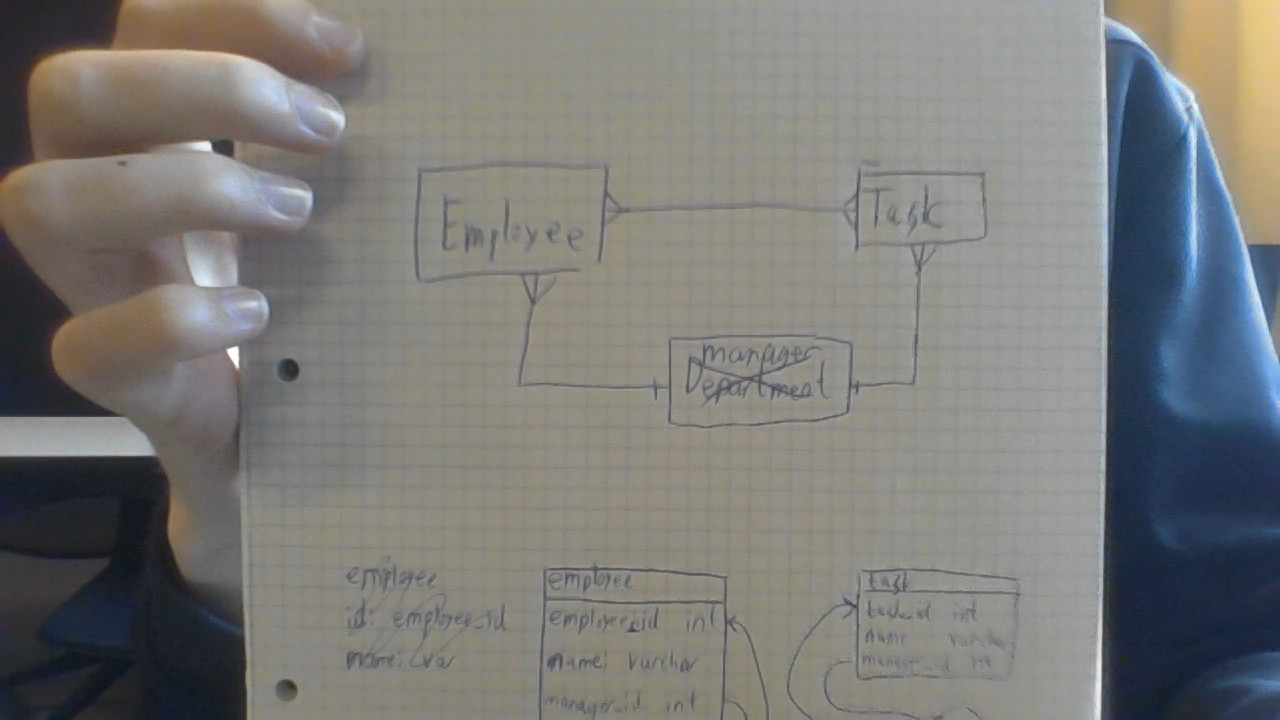 Employee
Task
manager
Department
employee
id: employee_id
name: var
employee
employee_id int
name: varchar
manager_id int
task
task_id int
name varchar
manager_id int